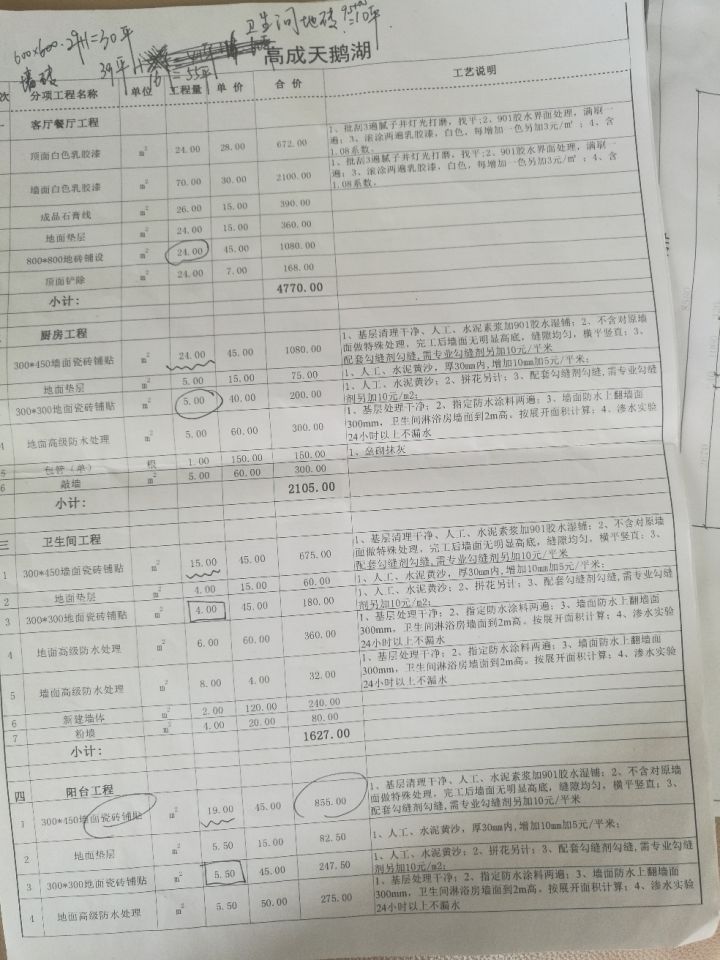 600x600·29+1=30平
卫生间地砖
=10平
墙砖
39平
=55平
高成天鹅湖
次 分项工程名称 单位 工程量 单价 合价 工艺说明
客厅餐厅工程
顶面白色乳胶漆 m² 24.00 28.00 672.00 1、批刮3遍腻子并灯光打磨，找平;2、901胶水界面处理，满刷一遍；3、滚涂两遍乳胶漆，白色，每增加一色另加3元/㎡；4、含1.08系数.
墙面白色乳胶漆 m² 70.00 30.00 2100.00 1、批刮3遍腻子并灯光打磨，找平;2、901胶水界面处理，满刷一遍；3、滚涂两遍乳胶漆，白色，每增加一色另加3元/㎡；4、含1.08系数.
成品石膏线 m² 26.00 15.00 390.00
地面垫层 m² 24.00 15.00 360.00
800*800地砖铺设 m² 24.00 45.00 1080.00
顶面铲除 m² 24.00 7.00 168.00
小计: 4770.00
厨房工程
300*450墙面瓷砖铺贴 m² 24.00 45.00 1080.00 1、基层清理干净、人工、水泥素浆加901胶水湿铺；2、不含对原墙面做特殊处理，完工后墙面无明显高底，缝隙均匀，横平竖直；3、配套勾缝剂勾缝,需专业勾缝剂另加10元/平米
地面垫层 m² 5.00 15.00 75.00 1、人工、水泥黄沙，厚30mm内,增加10mm加5元/平米；
300*300地面瓷砖铺贴 m² 5.00 40.00 200.00 1、人工、水泥黄沙；2、拼花另计；3、配套勾缝剂勾缝,需专业勾缝剂另加10元/m2；
4 地面高级防水处理 m² 5.00 60.00 300.00 1、基层处理干净；2、指定防水涂料两遍；3、墙面防水上翻墙面300mm，卫生间淋浴房墙面到2m高。按展开面积计算；4、渗水实验24小时以上不漏水
5 包管（单） 根 1.00 150.00 150.00 1、垒砌抹灰
6 敲墙 m² 5.00 60.00 300.00
小计: 2105.00
三 卫生间工程
1 300*450墙面瓷砖铺贴 m² 15.00 45.00 675.00 1、基层清理干净、人工、水泥素浆加901胶水湿铺；2、不含对原墙面做特殊处理，完工后墙面无明显高底，缝隙均匀，横平竖直；3、配套勾缝剂勾缝,需专业勾缝剂另加10元/平米
2 地面垫层 m² 4.00 15.00 60.00 1、人工、水泥黄沙，厚30mm内,增加10mm加5元/平米；
3 300*300地面瓷砖铺贴 m² 4.00 45.00 180.00 1、人工、水泥黄沙；2、拼花另计；3、配套勾缝剂勾缝,需专业勾缝剂另加10元/m2；
4 地面高级防水处理 m² 6.00 60.00 360.00 1、基层处理干净；2、指定防水涂料两遍；3、墙面防水上翻墙面300mm，卫生间淋浴房墙面到2m高。按展开面积计算；4、渗水实验24小时以上不漏水
5 墙面高级防水处理 m² 8.00 4.00 32.00 1、基层处理干净；2、指定防水涂料两遍；3、墙面防水上翻墙面300mm，卫生间淋浴房墙面到2m高。按展开面积计算；4、渗水实验24小时以上不漏水
6 新建墙体 m² 2.00 120.00 240.00
7 粉墙 m² 4.00 20.00 80.00
小计: 1627.00
四 阳台工程
1 300*450墙面瓷砖铺贴 m² 19.00 45.00 855.00 1、基层清理干净、人工、水泥素浆加901胶水湿铺；2、不含对原墙面做特殊处理，完工后墙面无明显高底，缝隙均匀，横平竖直；3、配套勾缝剂勾缝,需专业勾缝剂另加10元/平米
2 地面垫层 m² 5.50 15.00 82.50 1、人工、水泥黄沙，厚30mm内,增加10mm加5元/平米；
3 300*300地面瓷砖铺贴 m² 5.50 45.00 247.50 1、人工、水泥黄沙；2、拼花另计；3、配套勾缝剂勾缝,需专业勾缝剂另加10元/m2；
4 地面高级防水处理 m² 5.50 50.00 275.00 1、基层处理干净；2、指定防水涂料两遍；3、墙面防水上翻墙面300mm，卫生间淋浴房墙面到2m高。按展开面积计算；4、渗水实验24小时以上不漏水